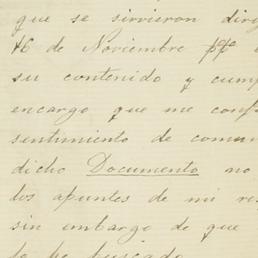 que se sirvieron dirig
16 de Noviembre ppº
su contenido y cump
encargo que me conf
sentimiento de comun
dicho Documento no
los apuntes de mi re
sin embargo de que
lo he buscado